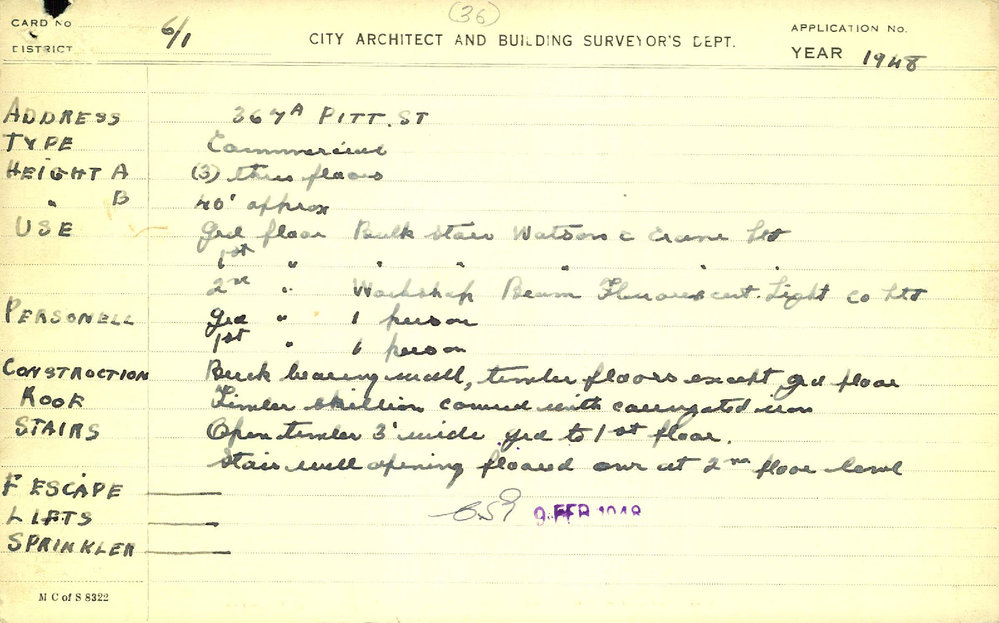 (36)
CARD No 6/1 CITY ARCHITECT AND BUILDING SURVEYOR'S DEPT. APPLICATION No.
DISTRICT YEAR 1948
ADDRESS 367A PITT. ST
TYPE Commercial
HEIGHT A (3) three floors
" B 40' approx
USE Grd floor Bulk store Watson & Crane Ltd
1st " " " " " "
2nd " Workshop Beam Fluorescent Light Co Ltd
PERSONELL Grd " 1 person
1st " 1 person
CONSTRUCTION Brick bearing wall, timber floors except grd floor
ROOF Timber skillion covered with corrugated iron
STAIRS Open timber 3' wide grd to 1st floor.
Stair well opening floored over at 2nd floor level
F ESCAPE ———
LIFTS ———
SPRINKLER ———
9 FEB 1948
M C of S 8322